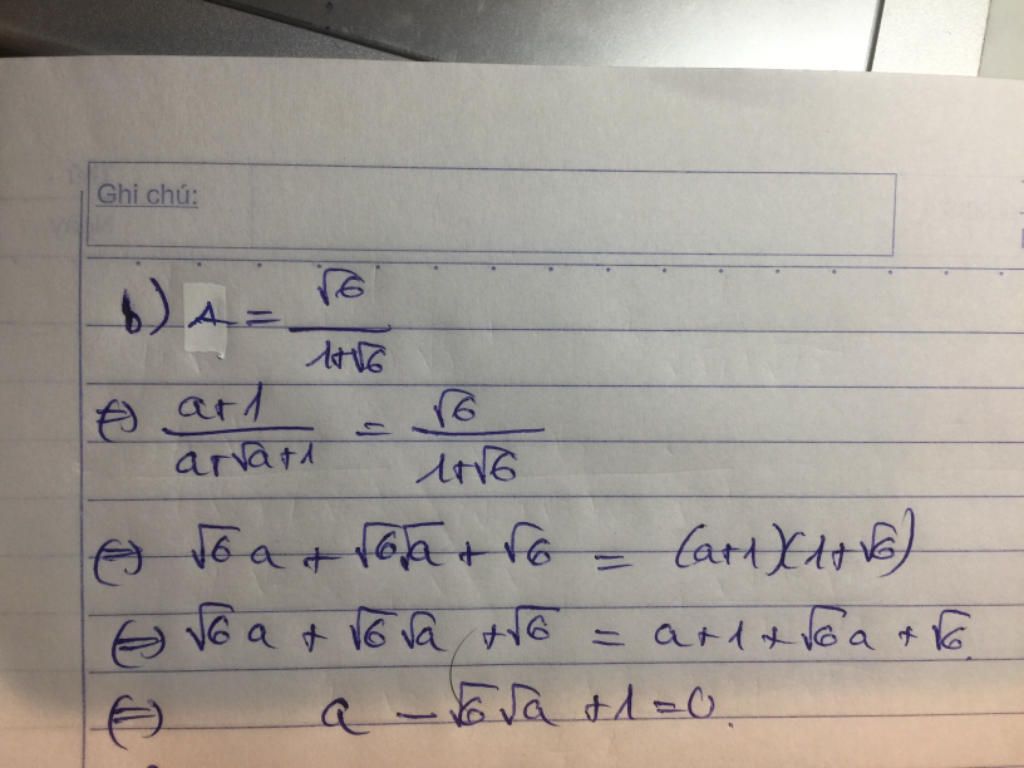 Ghi chú:
b) A = √6 / 1+√6
⇔ a+1 / a+√a+1 = √6 / 1+√6
⇔ √6 a + √6√a + √6 = (a+1)(1+√6)
⇔ √6 a + √6 √a + √6 = a+1+√6 a + √6.
⇔ a - √6 √a + 1 = 0.